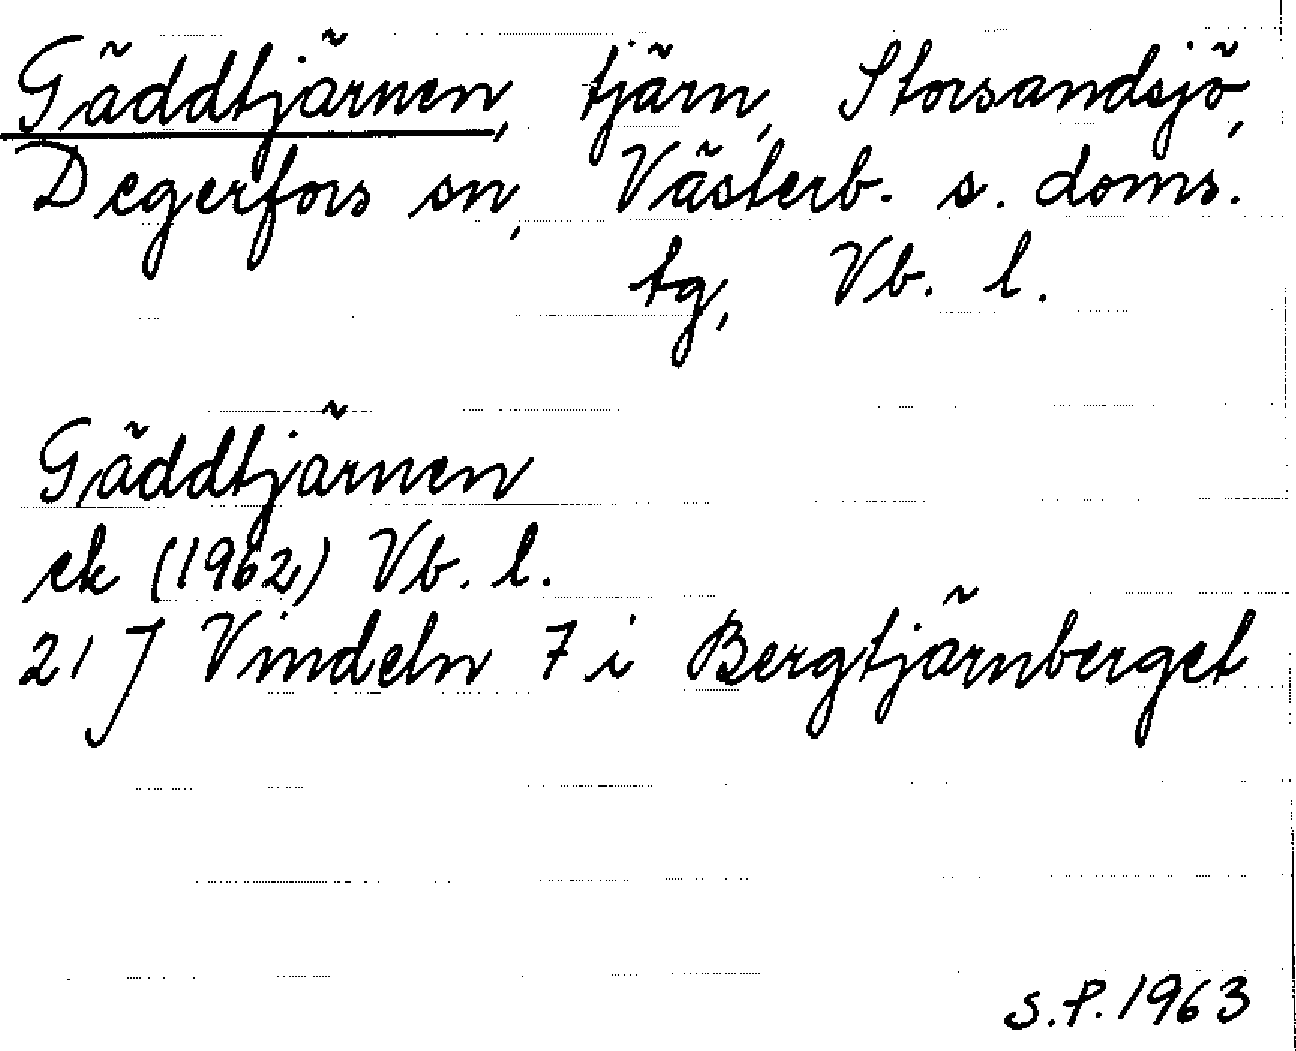 Gäddtjärnen, tjärn, Storsandsjö,
Degerfors sn, Västerb. s. doms.
tg, Vb. l.
Gäddtjärnen
ek (1962) Vb. l.
21 J Vindeln 7 i Bergtjärnberget
S.P. 1963